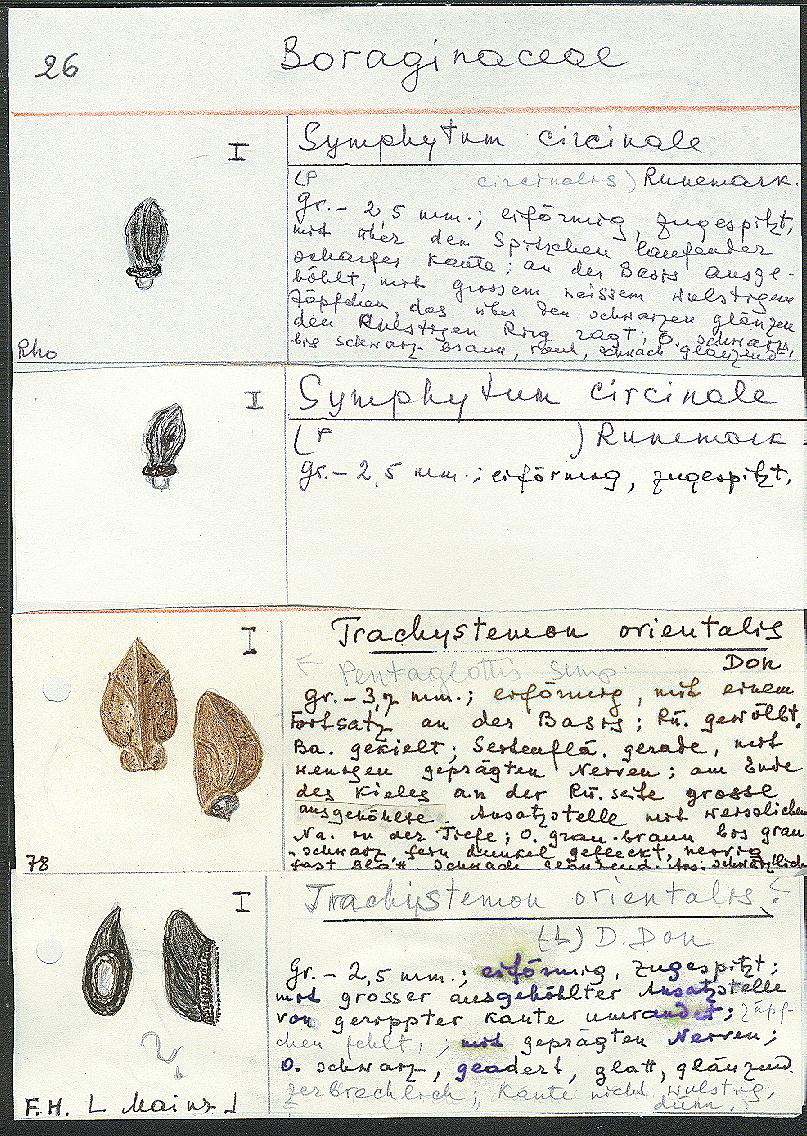 26
Boraginaceae
I
Symphytum circinale
(P circinalis) Runemark.
gr. - 2 5 mm.; eiförmig, zugespitzt,
mit über den Spitzchen laufender
scharfer Kante; an der Basis ausge-
höhlt, mit grossem weissem wulstigem
Zäpfchen, das über den schwarzen glänzen
den Wulstigen Ring ragt; O. schwarz,
bis schwarz-braun, rauh, schwach glänzend
Rho
I
Symphytum circinale
(P ) Runemark
gr. - 2,5 mm.; eiförmig, zugespitzt,
I
Trachystemon orientalis
Don
Pentaglottis semp.
gr. - 3,7 mm.; eiförmig, mit einem
Fortsatz an der Basis; Rü. gewölbt,
Ba. gekielt; Seitenflä. gerade, mit
wenigen geprägten Nerven; am Ende
des Kieles an der Rü. seite grosse
ausgehöhlte Ansatzstelle mit weisslichem
Na. in der Tiefe; O. grau-braun bis grau
schwarz, fein dunkel gefleckt, nervig
fast glatt schwach glänzend; schwärzlich
78
I
Trachystemon orientalis ?
(L) D. Don
Gr. - 2,5 mm.; eiförmig, zugespitzt;
mit grosser ausgehöhlter Ansatzstelle
von gerippter Kante umrandet; Zäpf-
chen fehlt; ; mit geprägten Nerven;
O. schwarz, geadert, glatt, glänzend
zerbrechlich; Kante nicht wulstig,
dünn,
?
F.H. L Mainz J